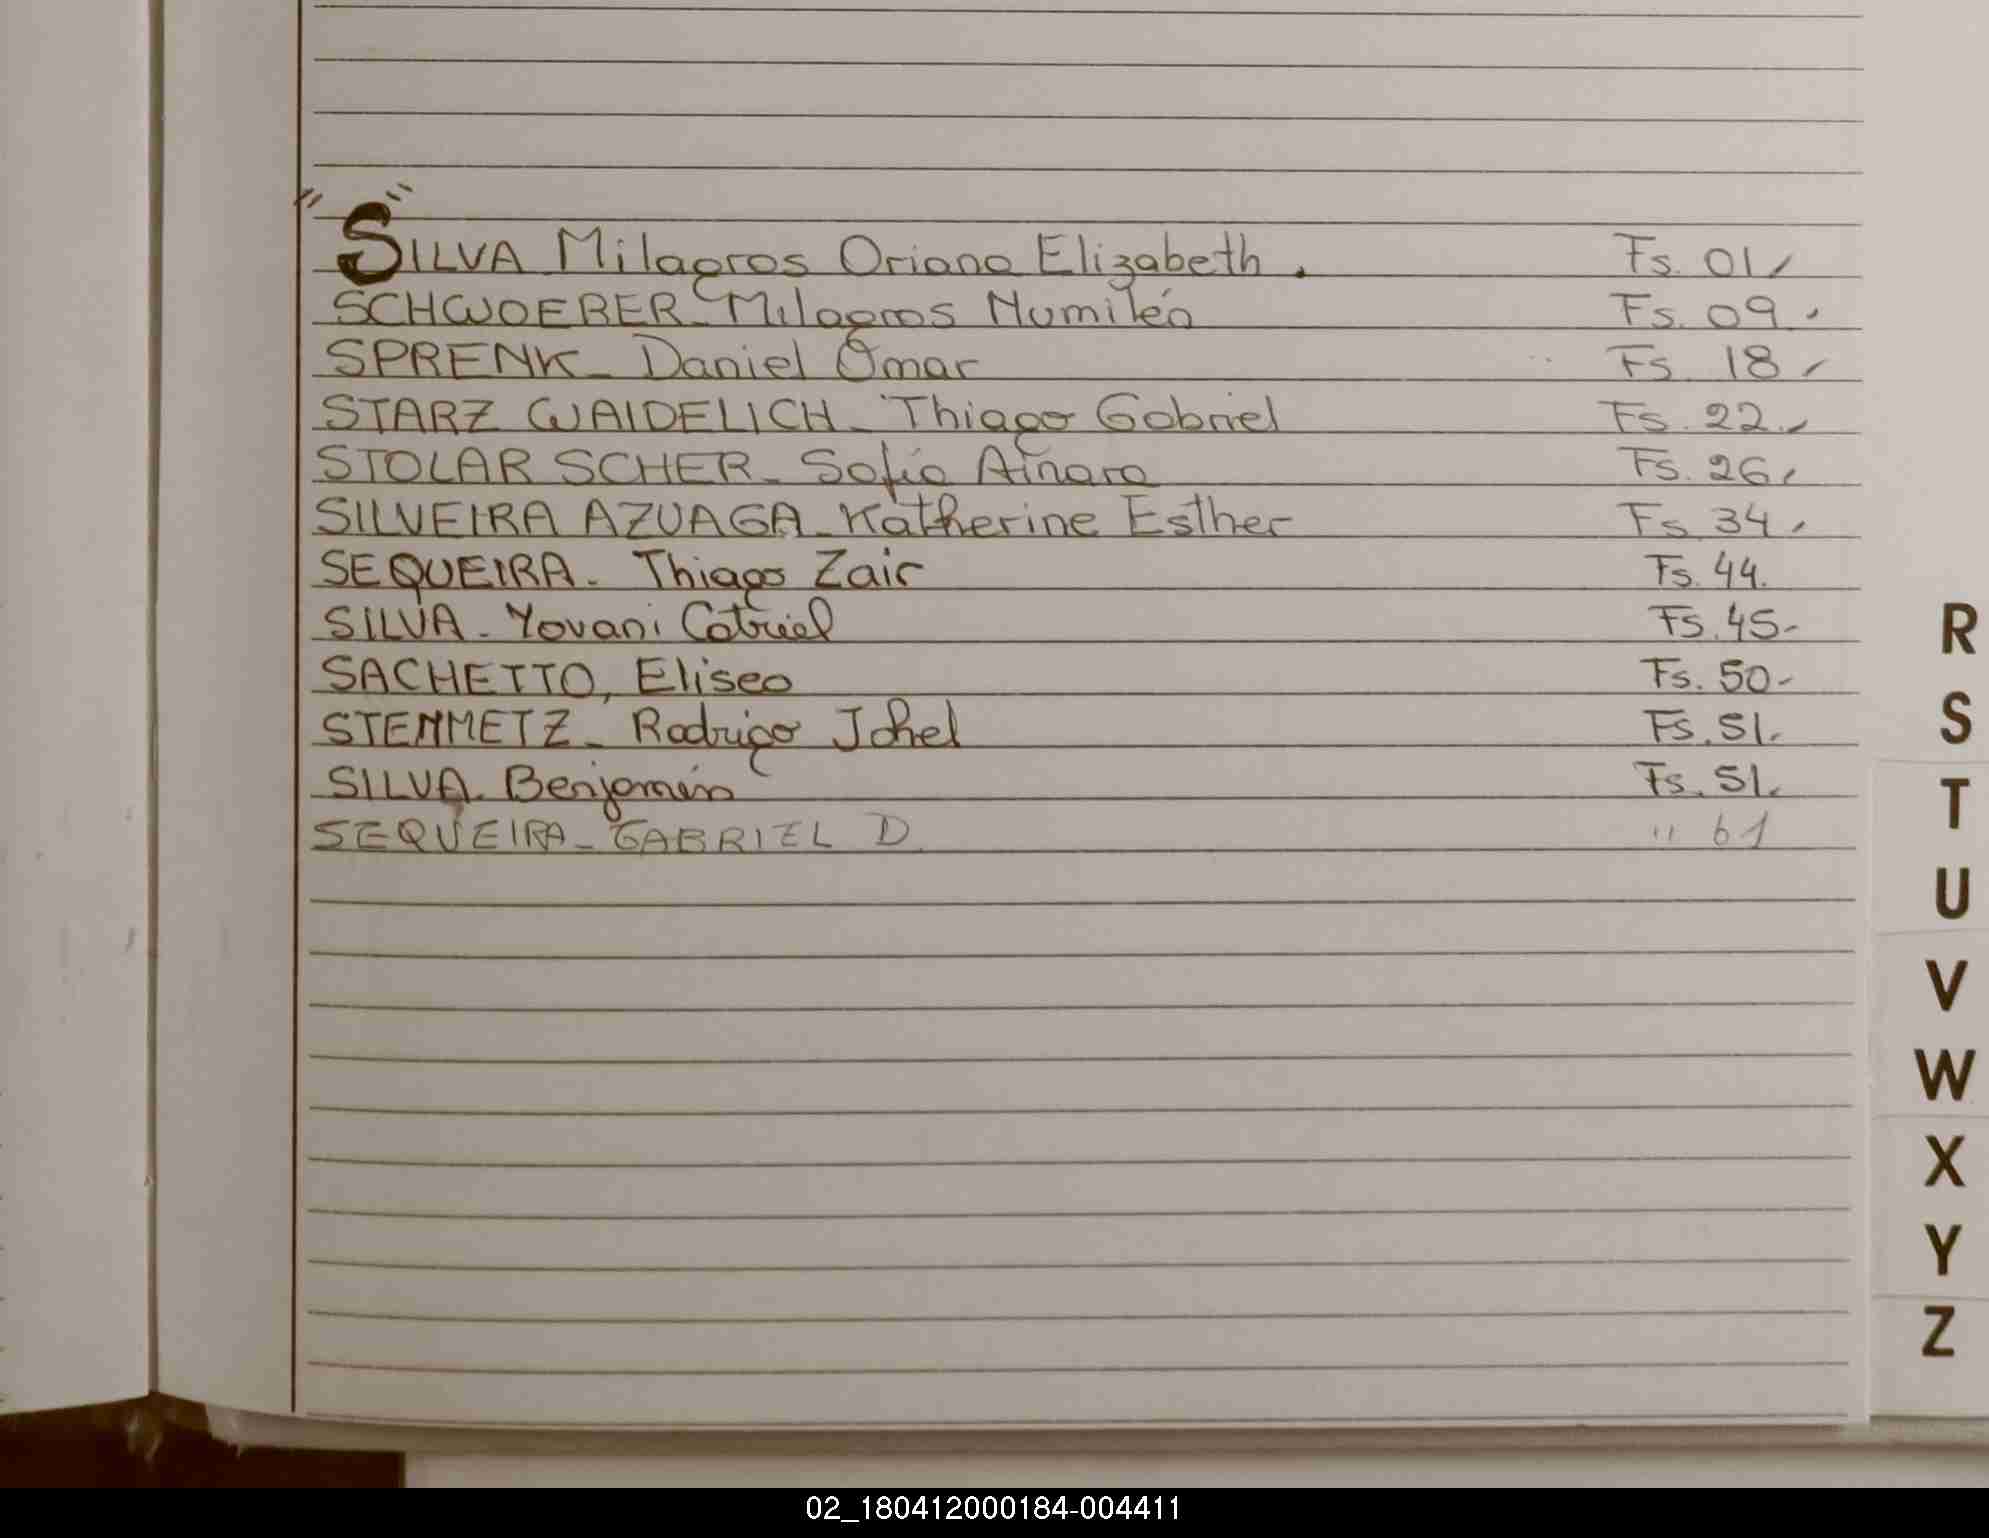 "SILVA Milagros Oriana Elizabeth. Fs. 01,
SCHWOERER_ Milagros Numilén Fs. 09.
SPRENK_ Daniel Omar Fs. 18
STARZ WAIDELICH_ Thiago Gabriel Fs. 22.
STOLAR SCHER_ Sofía Ainara Fs. 26,
SILVEIRA AZUAGA_ Katherine Esther Fs. 34.
SEQUEIRA. Thiago Zair Fs. 44.
SILVA_ Yovani Catriel Fs. 45-
SACHETTO, Eliseo Fs. 50-
STENMETZ_ Rodrigo Johel Fs. 51.
SILVA. Benjamín Fs. 51.
SEQUEIRA_ GABRIEL D. " 61
R
S
T
U
V
W
X
Y
Z
02_180412000184-004411